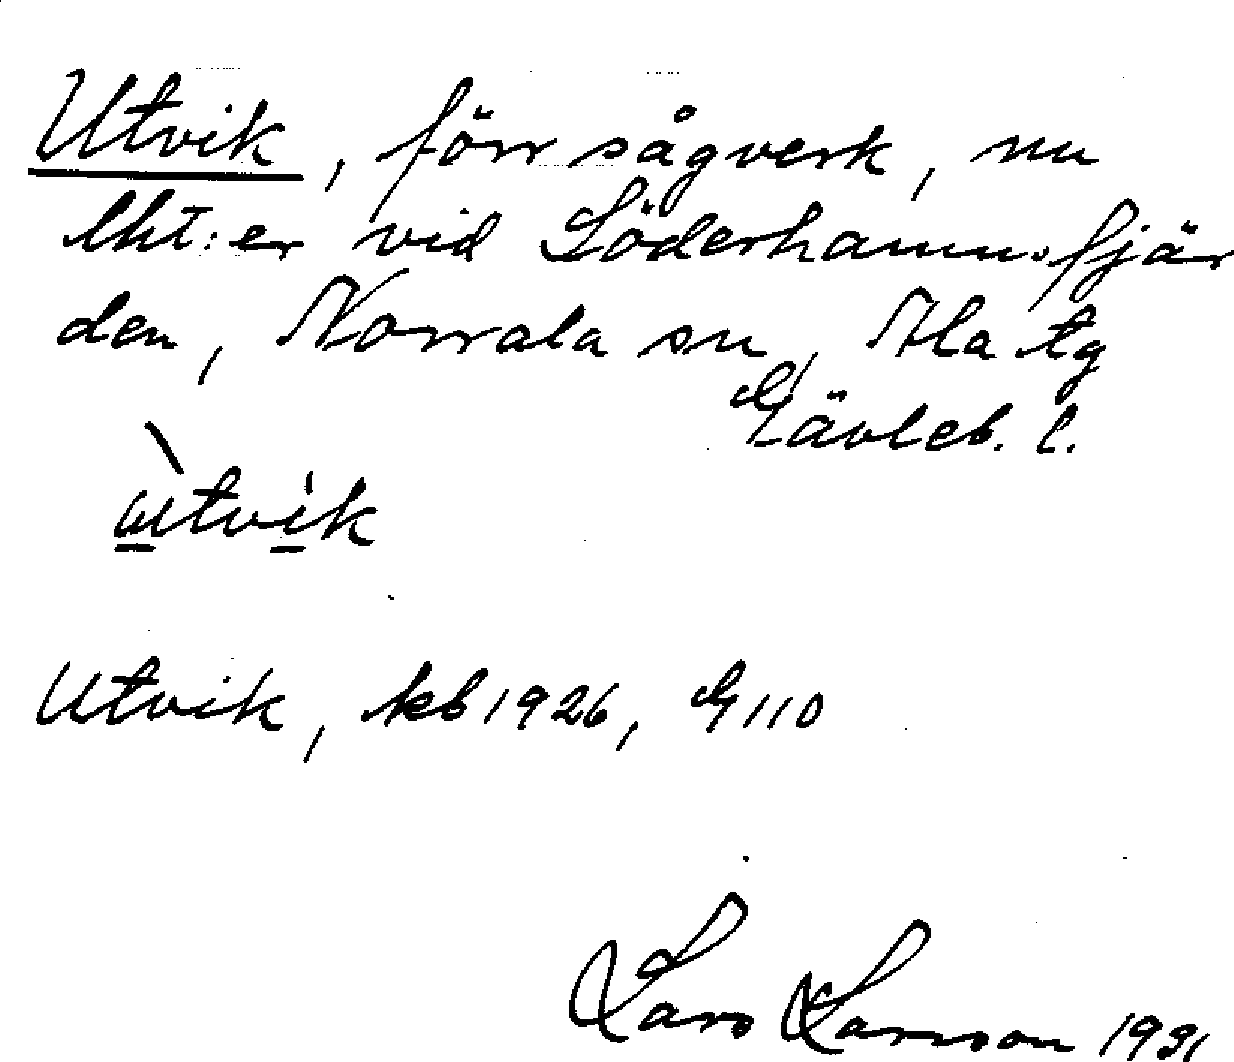 Utvik, förr sågverk, nu
lht:er vid Söderhamnsfjär
den, Norrala sn, Ala tg
Gävleb. l.
ùtvik
Utvik, kb 1926, G 110
Lars Larsson 1931